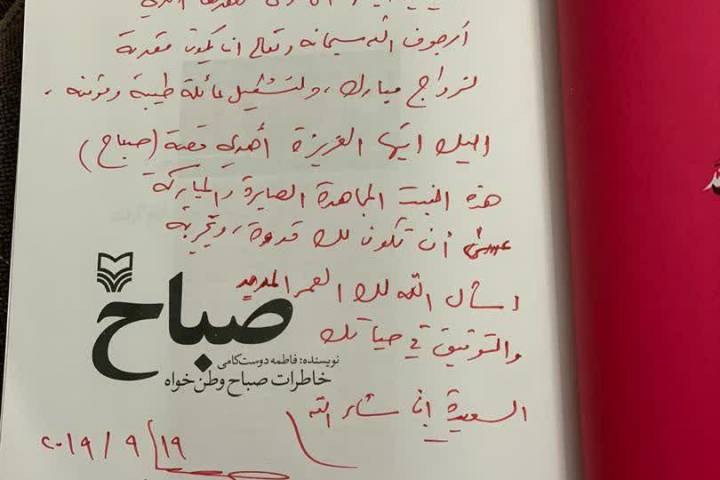 أرجو من الله سبحانه وتعالى ان يكون مقدمة
لزواج مبارك، ولتشكيل عائلة طيبة ومؤمنة.
اليك ايتها العزيزة أهدي قصة (صباح)
هذه البنت المجاهدة الصابرة والمباركة
عسى أن تكون لك قدوة، وتجربة
اسأل الله لك العمر المديد
صباح
والتوفيق في حياتك
نویسنده: فاطمه دوست‌کامی
خاطرات صباح وطن‌خواه
السعيدة إن شاء الله
٢٠١٩ / ٩ / ١٩